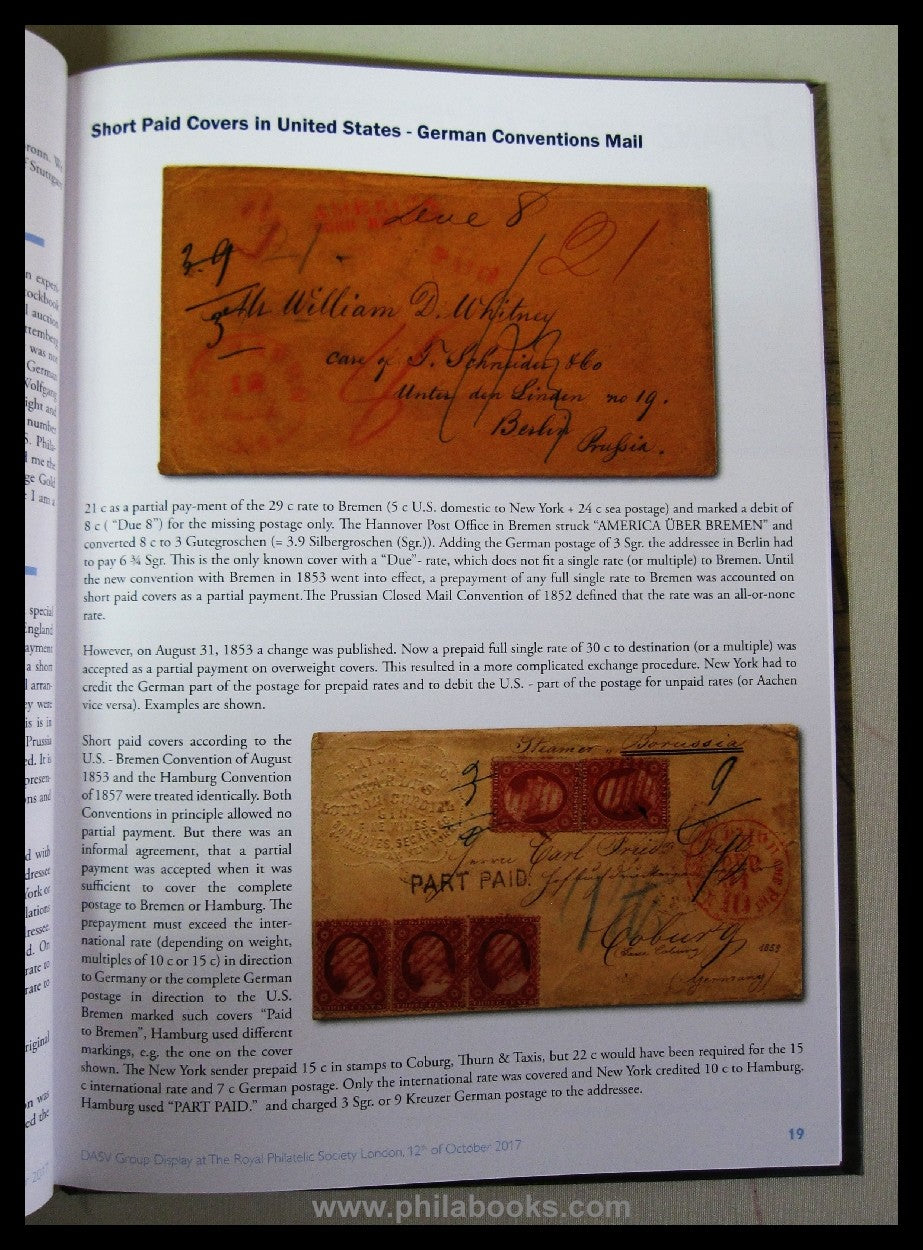 Short Paid Covers in United States - German Conventions Mail
Due 8
21
3.9
3
Mr William D. Whitney
care of T. Schneider & Co
Unter den Linden no 19.
Berlin
Prussia.
21 c as a partial pay-ment of the 29 c rate to Bremen (5 c U.S. domestic to New York + 24 c sea postage) and marked a debit of
8 c ( “Due 8”) for the missing postage only. The Hannover Post Office in Bremen struck “AMERICA ÜBER BREMEN” and
converted 8 c to 3 Gutegroschen (= 3.9 Silbergroschen (Sgr.)). Adding the German postage of 3 Sgr. the addressee in Berlin had
to pay 6 ¾ Sgr. This is the only known cover with a “Due”- rate, which does not fit a single rate (or multiple) to Bremen. Until
the new convention with Bremen in 1853 went into effect, a prepayment of any full single rate to Bremen was accounted on
short paid covers as a partial payment.The Prussian Closed Mail Convention of 1852 defined that the rate was an all-or-none
rate.
However, on August 31, 1853 a change was published. Now a prepaid full single rate of 30 c to destination (or a multiple) was
accepted as a partial payment on overweight covers. This resulted in a more complicated exchange procedure. New York had to
credit the German part of the postage for prepaid rates and to debit the U.S. - part of the postage for unpaid rates (or Aachen
vice versa). Examples are shown.
Short paid covers according to the
U.S. - Bremen Convention of August
1853 and the Hamburg Convention
of 1857 were treated identically. Both
Conventions in principle allowed no
partial payment. But there was an
informal agreement, that a partial
payment was accepted when it was
sufficient to cover the complete
postage to Bremen or Hamburg. The
prepayment must exceed the inter-
national rate (depending on weight,
multiples of 10 c or 15 c) in direction
to Germany or the complete German
postage in direction to the U.S.
Bremen marked such covers “Paid
to Bremen”, Hamburg used different
markings, e.g. the one on the cover
shown. The New York sender prepaid 15 c in stamps to Coburg, Thurn & Taxis, but 22 c would have been required for the 15
c international rate and 7 c German postage. Only the international rate was covered and New York credited 10 c to Hamburg.
Hamburg used “PART PAID.” and charged 3 Sgr. or 9 Kreuzer German postage to the addressee.
Steamer Borussia
3
9
Carl
PART PAID.
Coburg
1859
Germany
19
DASV Group Display at The Royal Philatelic Society London, 12th of October 2017
www.philabooks.com